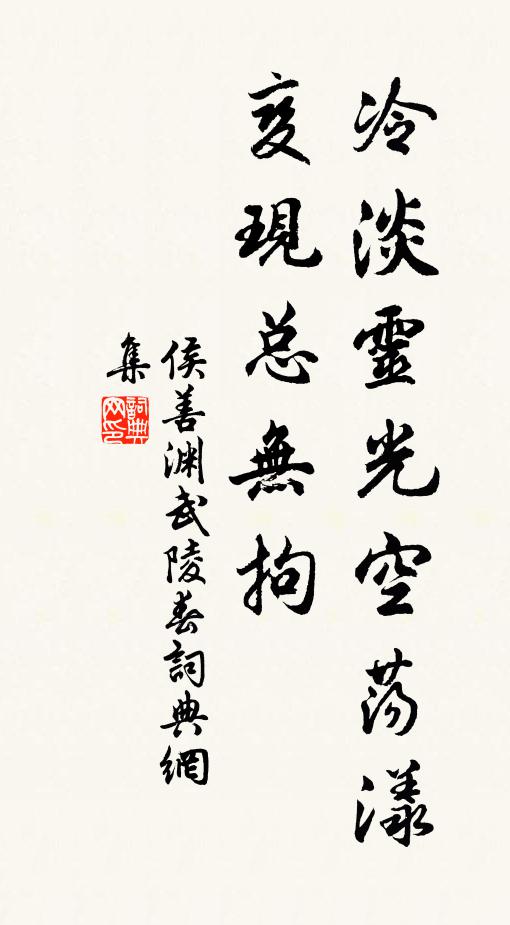 冷淡靈光空荡漾
变現总無拘
侯善渊武陵春詞典網
集
詞典
网印